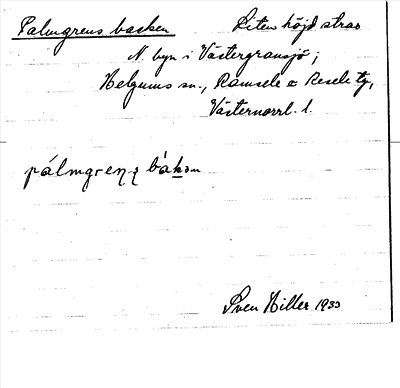 Palmgrens backen Liten höjd strax
N. byn i Västergransjö;
Helgums sn., Ramsele o Resele tg,
Västernorrl. l.
Sven Hiller 1933